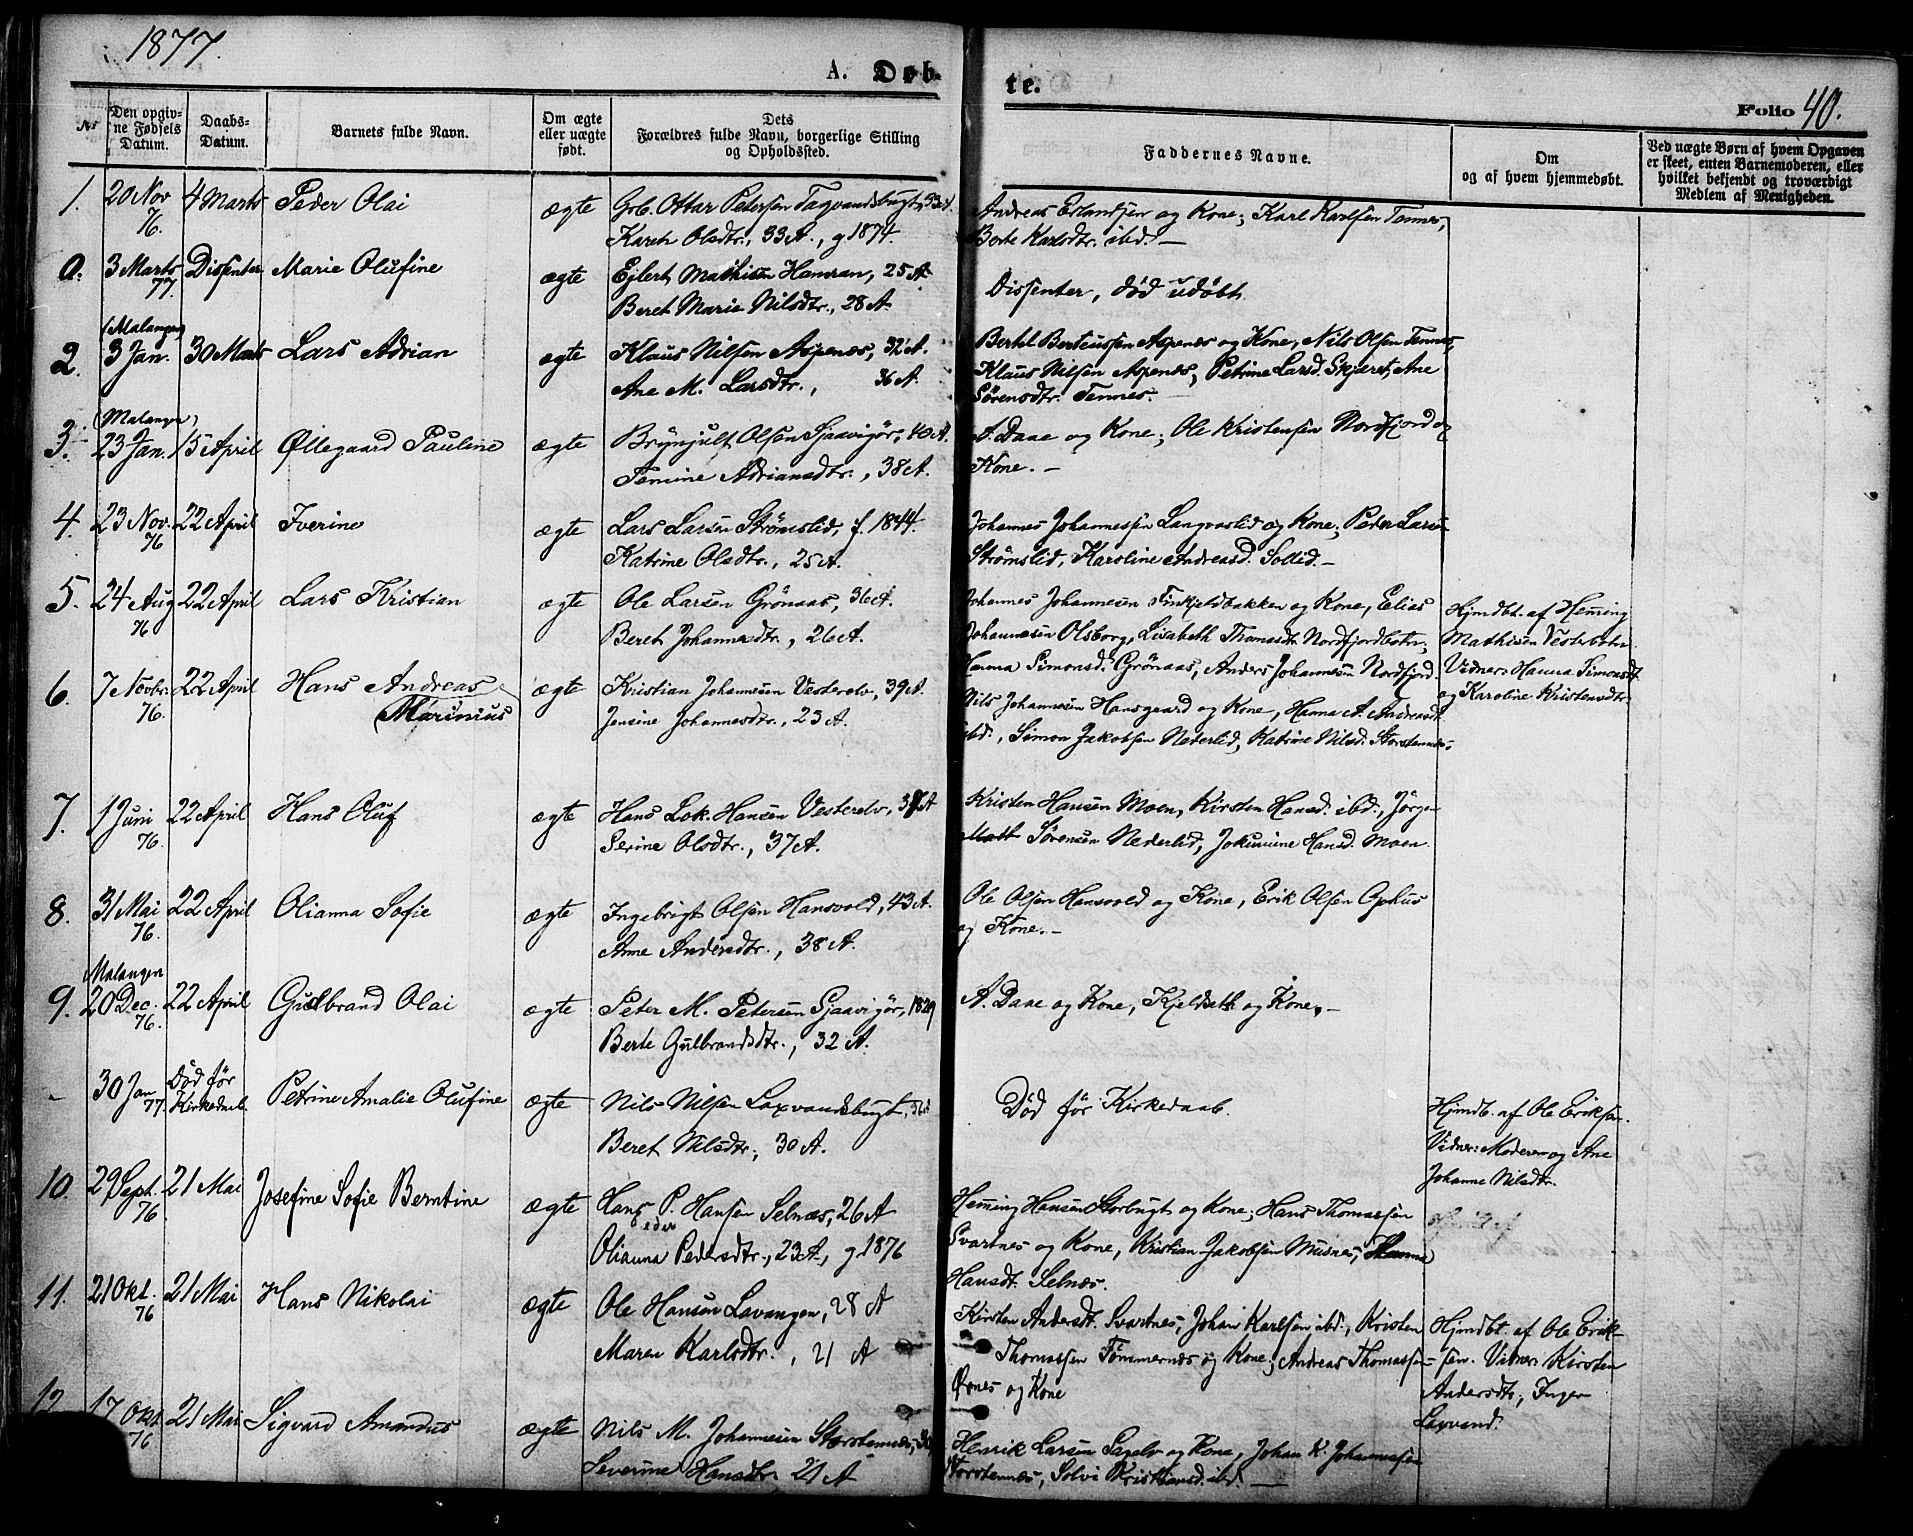 1877.
A. Døb-
te.
Folio 40.
Nr
Den opgiv-
ne Fødsels
Datum.
Daabs-
Datum.
Barnets fulde Navn.
Om ægte
eller uægte
født.
Dets
Forældres fulde Navn, borgerlige Stilling
og Opholdssted.
Faddernes Navne.
Om
og af hvem hjemmedøbt.
Ved uægte Børn af hvem Opgaven
er skeet, enten Barnemoderen, eller
hvilket bekjendt og troværdigt
Medlem af Menigheden.
1. 20 Nov 76. 4 Marts Peder Olai ægte
Grb. Ottar Petersen Tagvandsbugt, 33 A.
Karen Olsdtr., 33 A., g 1874.
Andreas Erlandsen og Kone; Karl Karlsen Tennes,
Berte Karlsdtr. ibd. —
0. 3 Marts 77. Dissenter Marie Olufine ægte
Ejlert Mathisen Hamran, 25 A.
Beret Marie Nilsdtr., 28 A.
Dissenter, død udøbt
2. (Malangen) 3 Jan. 30 Marts Lars Adrian ægte
Klaus Nilsen Aspenæs, 32 A.
Ane M. Larsdtr., 36 A.
Bertel Berteussen Aspenæs og Kone, Nils Olsen Tennes,
Klaus Nilsen Aspenæs, Petrine Larsd. Skjæret, Ane
Sørensdtr. Tennes. —
3. (Malangen) 23 Jan. 15 April Øllegaard Pauline ægte
Brynjulf Olsen Sjaavigør, 40 A.
Temine Adriansdtr., 38 A.
A. Daae og Kone; Ole Kristensen Nordfjord og
Kone. —
4. 23 Nov. 76 22 April Iverine ægte
Lars Larsen Strømslid, f. 1844.
Katrine Olsdtr., 25 A.
Johannes Johannessen Langvaslid og Kone; Peder Larsen
Strømslid, Karoline Andreasd. Sollid. —
5. 24 Aug 76 22 April Lars Kristian ægte
Ole Larsen Grönaas, 36 A.
Beret Johannesdtr., 26 A.
Johannes Johannesen Finkjeldbakken og Kone, Elias
Johannesen Olsborg, Lisabeth Thomasdtr. Nordfjordbotn,
Hanna Simonsd. Grönaas, Anders Johannesen Nordfjord.
Hjmdbt. af Heming
Mathisen Vesterbotn.
Vidner: Hanna Simonsdt
og Karoline Kristensdtr.
6. 7 Novbr. 76. 22 April Hans Andreas
Marinius ægte
Kristian Johannesen Vesterelv, 39 A.
Jensine Johannesdtr., 25 A.
Nils Johannesen Hansgaard og Kone, Hanna A. Andreasdt.
ibd., Simon Jakobsen Nederlid, Katrine Nilsd. Storstennes.
7. 1 Juni 76. 22 April Hans Oluf ægte
Hans Lok. Hansen Vesterelv, 37 A
Serine Olsdtr., 37 A.
Kristen Hansen Moen, Kirsten Hansd. ibd., Jørgen
Sørensen Nederlid, Jokumine Hansd. Moen.
8. 31 Mai 76. 22 April Olianna Sofie ægte
Ingebrigt Olsen Hansvold, 43 A.
Anne Andersdtr., 38 A.
Ole Olsen Hansvold og Kone, Erik Olsen Ophus
og Kone. —
9. Malangen 20 Dec. 76. 22 April Gulbrand Olai ægte
Peter M. Petersen Sjaavigør, 1829
Berte Gulbrandsdtr., 32 A.
A. Daae og Kone, Kjeldseth og Kone. —
- 30 Jan 77. Død før
Kirkedaab. Petrine Amalie Olufine ægte
Nils Nilsen Laxvandsbugt, 36 A
Beret Nilsdtr., 30 A.
Død før Kirkedaab.
Hjmdb. af Ole Eriksen.
Vidner: Moderen og Ane
Johanne Nilsdtr.
10. 29 Sept. 76. 21 Mai Josefine Sofie Berntine ægte
Hans P. Hansen Selnæs, 26 A
eder
Olianna Pedersdtr., 23 A., g 1876
Heming Hansen Storbugt og Kone; Hans Thomassen
Svartnes og Kone, Kristian Jakobsen Musnes, Hanna
Hansdt. Selnæs.
11. 21 Okt. 76 21 Mai Hans Nikolai ægte
Ole Hansen Lavangen, 28 A
Maren Karlsdtr., 21 A
Kirsten Andersdt. Svartnes, Johan Karlsen ibd., Kristen
Thomassen Tømmernæs og Kone; Andreas Thomassen
Ørnes og Kone
Hjmdbt. af Ole Erik-
sen. Vidner Kirsten
Andersdtr., Inger
Laxvand.
12. 17 Okt 76 21 Mai Sigvard Amandus ægte
Nils M. Johannesen Storstennæs, 30
Severine Hansdtr. 21 A
Henrik Larsen Sagelv og Kone, Johan K. Johannessen
Storstennæs, Solvi Kristiansd. ibd. —